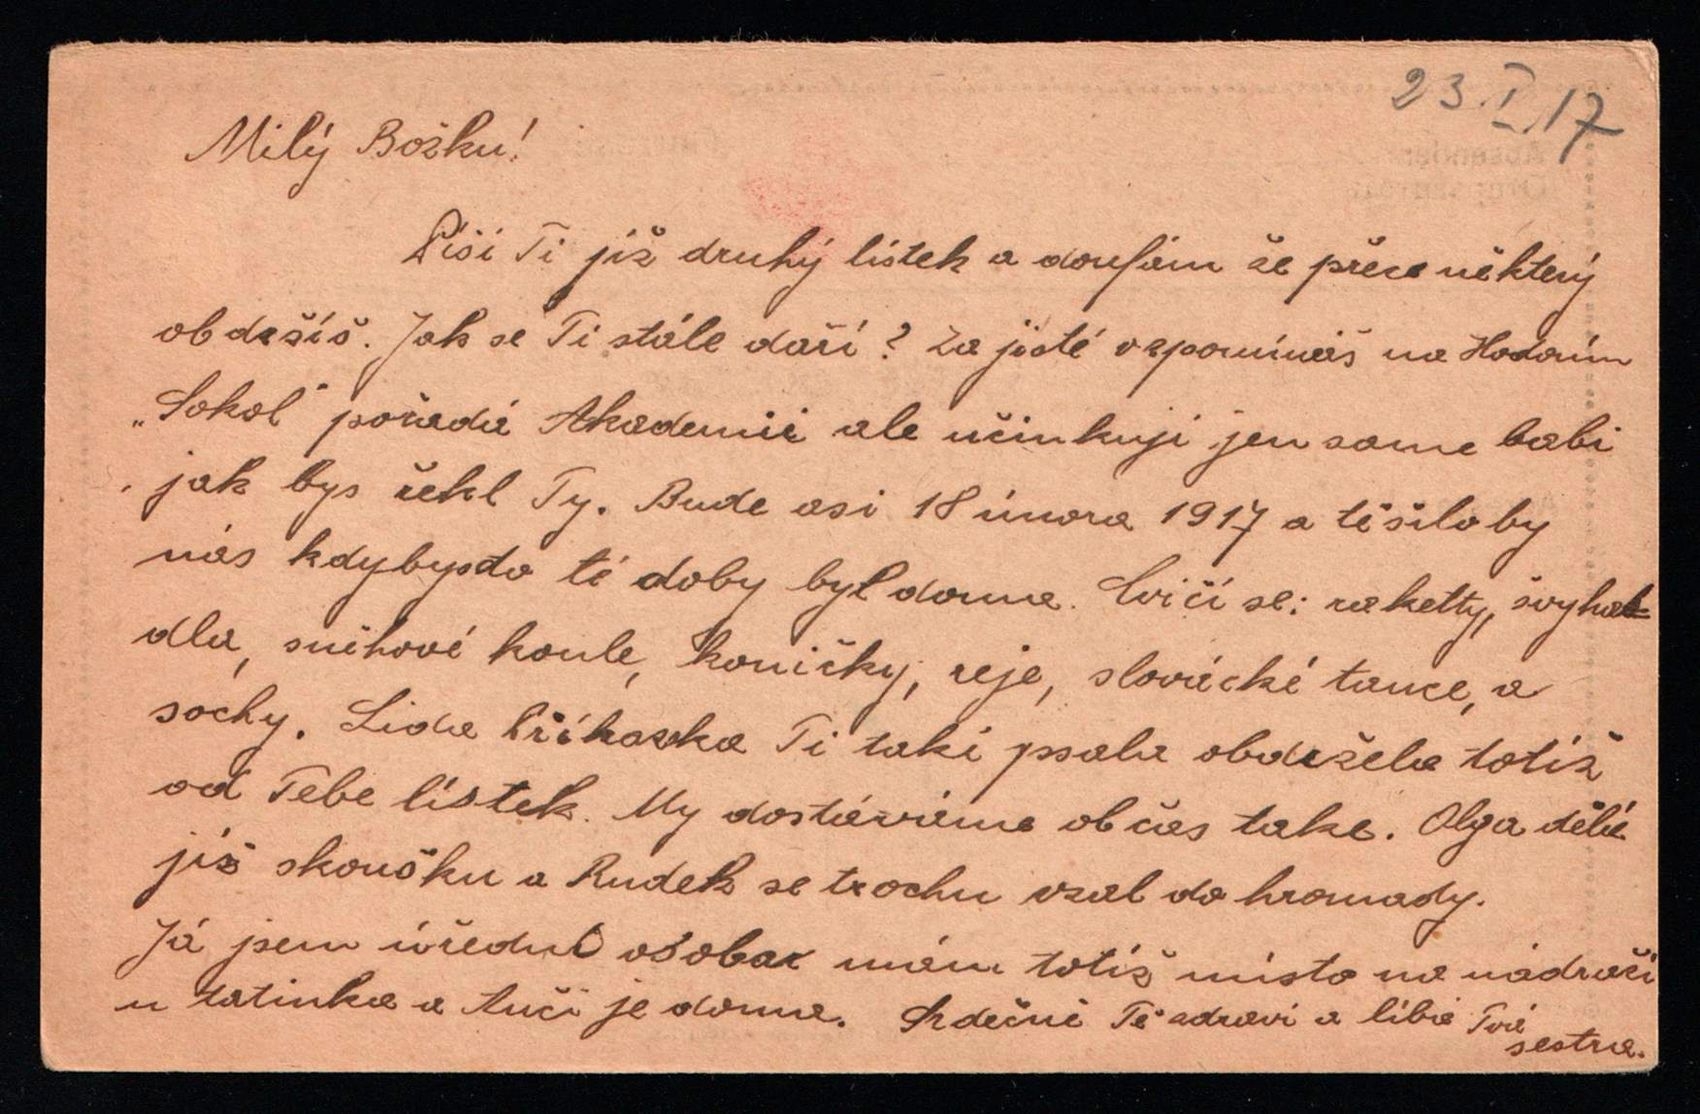 23.I.17
Milý Božku!
Píši Ti již druhý lístek a doufám že přece některý
obdržíš. Jak se Ti stále daří? Za jisté vzpomínáš na Hodonín
„Sokol" pořadá Akademii ale učinkuji jen same babi
jak bys řekl Ty. Bude asi 18 února 1917 a těšilo by
nás kdybys do té doby byl doma. Cvičí se: raketty, švyha-
dla, sněhové koule, koničky, reje, slovácké tance, a
sochy. Lida Příkaska Ti taki psala obdržela totiž
od Tebe lístek. My dostáváme občas take. Olga dělá
již skoušku a Rudek se trochu vzal do hromady.
Já jsem úřední osoba mám totiž místo na nádraží
u tatínka a Anči je doma. Srdečně Tě zdraví a líbá Tvá
sestra.